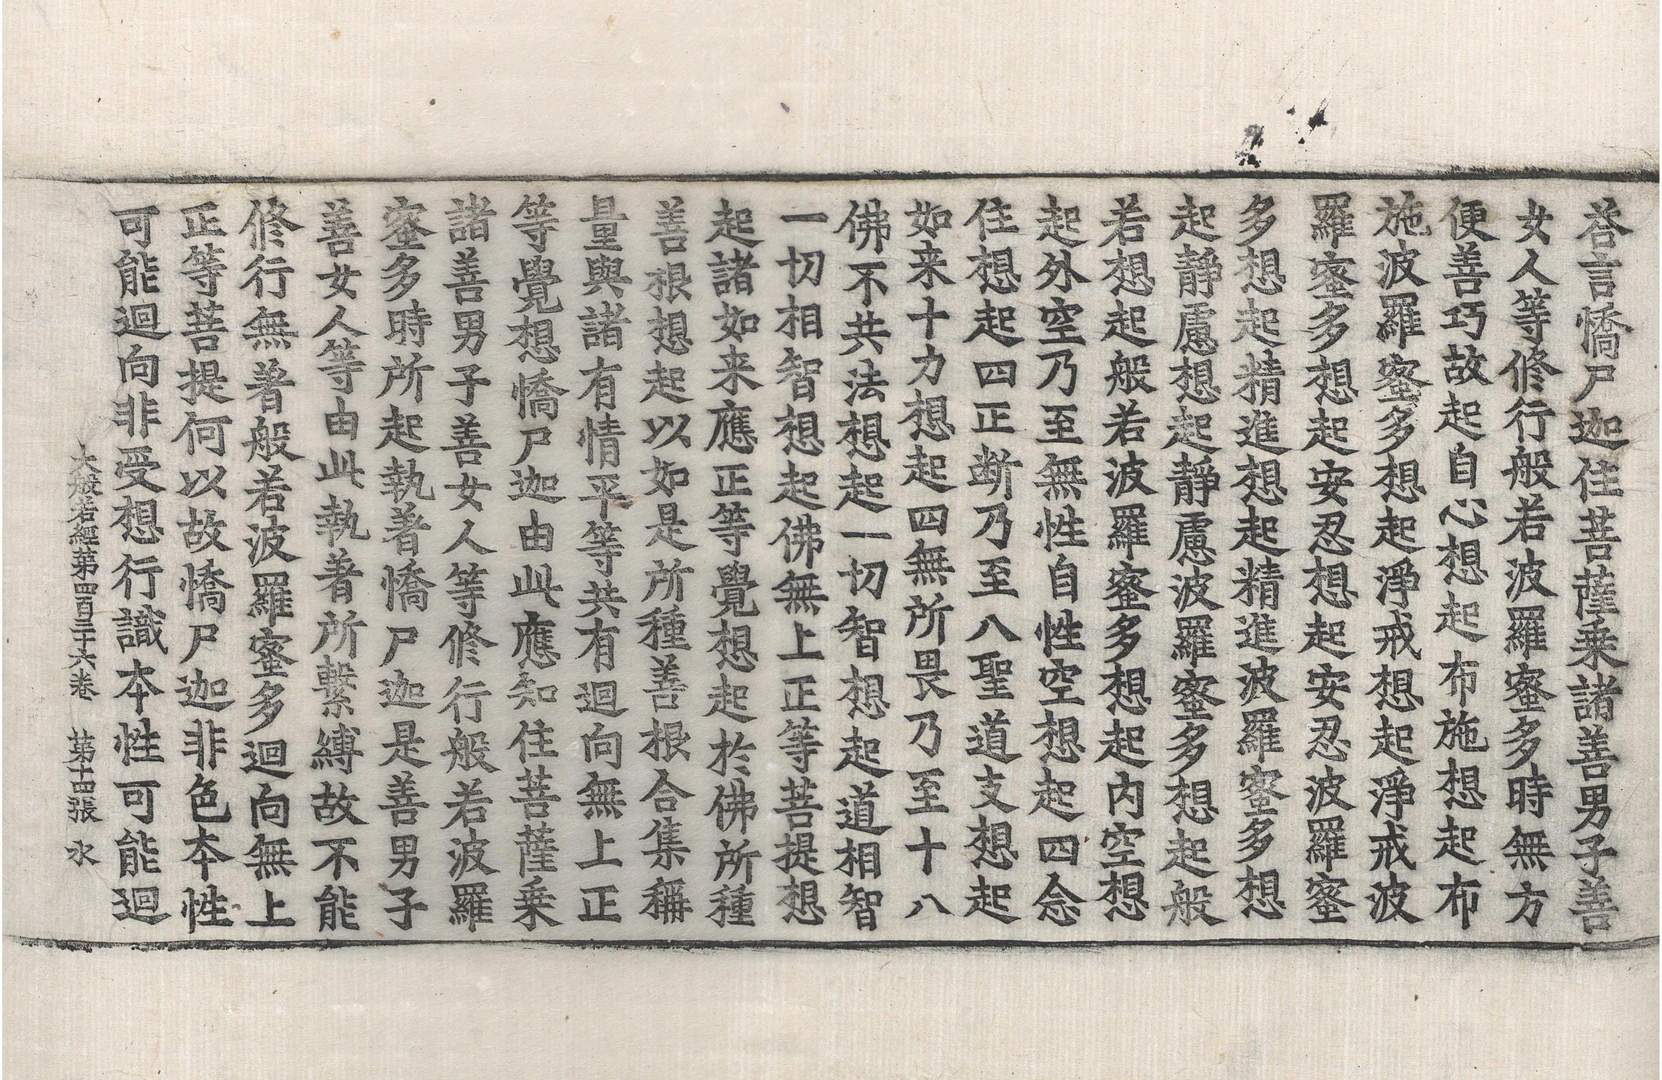 荅言憍尸迦住菩薩乘諸善男子善
女人等修行般若波羅蜜多時無方
便善巧故起自心想起布施想起布
施波羅蜜多想起淨戒想起淨戒波
羅蜜多想起安忍想起安忍波羅蜜
多想起精進想起精進波羅蜜多想
起靜慮想起靜慮波羅蜜多想起般
若想起般若波羅蜜多想起內空想
起外空乃至無性自性空想起四念
住想起四正断乃至八聖道支想起
如来十力想起四無所畏乃至十八
佛不共法想起一切智想起道相智
一切相智想起佛無上正等菩提想
起諸如来應正等覺想起於佛所種
善根想起以如是所種善根合集稱
量與諸有情平等共有迴向無上正
等覺想憍尸迦由此應知住菩薩乘
諸善男子善女人等修行般若波羅
蜜多時所起執著憍尸迦是善男子
善女人等由此執著所繫縛故不能
修行無著般若波羅蜜多迴向無上
正等菩提何以故憍尸迦非色本性
可能迴向非受想行識本性可能迴
大般若經第四百三十六卷　第十四張　水